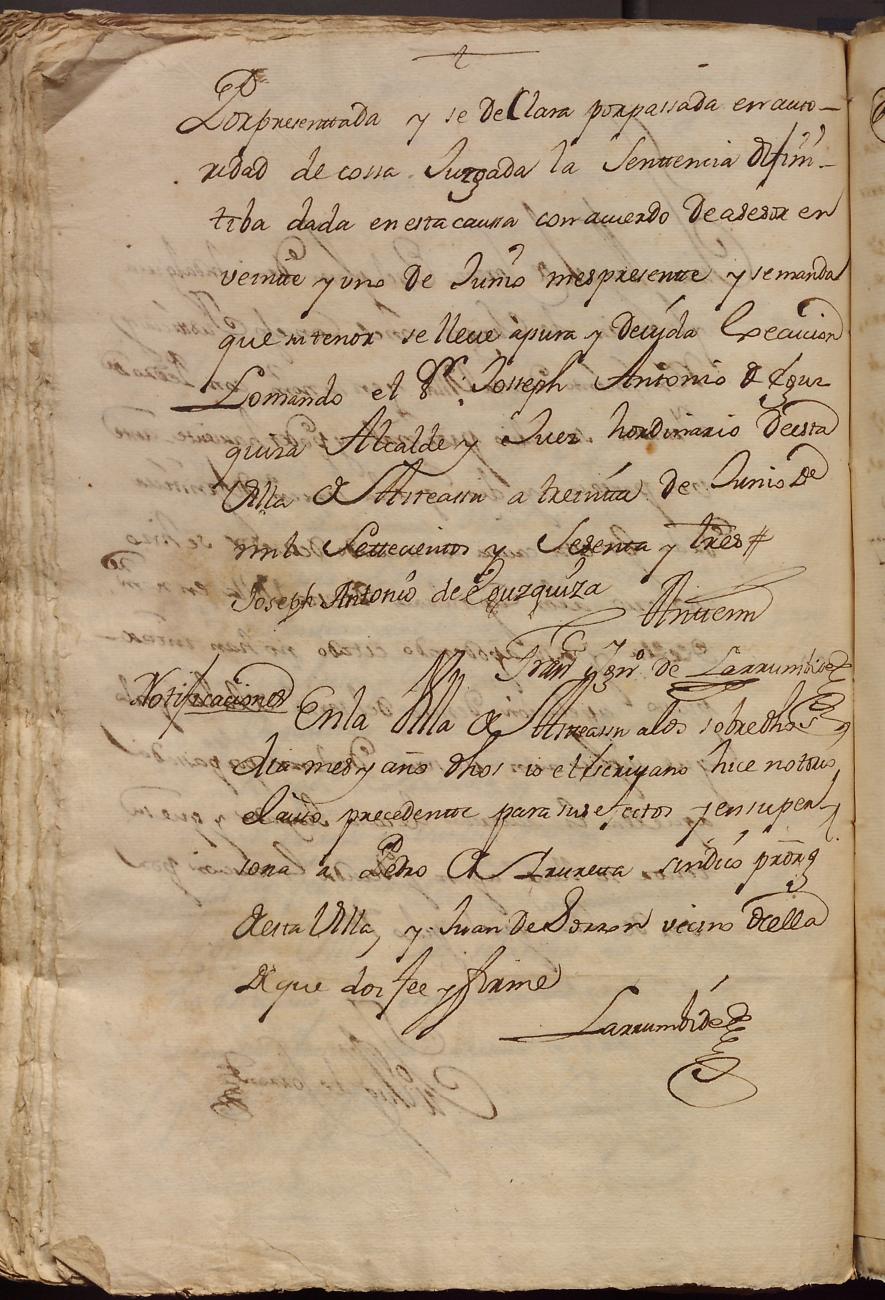 Por presentada y se declara por passada en auto-
ridad de cossa Juzgada la Sentencia difini-
tiba dada en esta caussa con acuerdo de asesor en
veinte y uno de Junio mes presente y se manda
que su tenor se lleve apura y devida execucion
Lo mando el Sr. Josseph Antonio de Eguz
quiza Alcalde y Juez hordinario de esta
Villa de Asteassu a treinta de Junio de
mil Settecientos y Sesenta y tres #
Joseph Antonio de Eguzquiza
Antemi
Fran.co Ign.o de Larrumbide
Notificaciones
En la Villa de Asteassu a los sobredhos
dia mes y año dhos io el Escrivano hice notorio
el auto precedente para sus efectos y en su per
sona a Pedro de Irureta sindico pror g
de esta Villa, y Juan de vecino de ella
de que doi fee y firme
Larrumbide